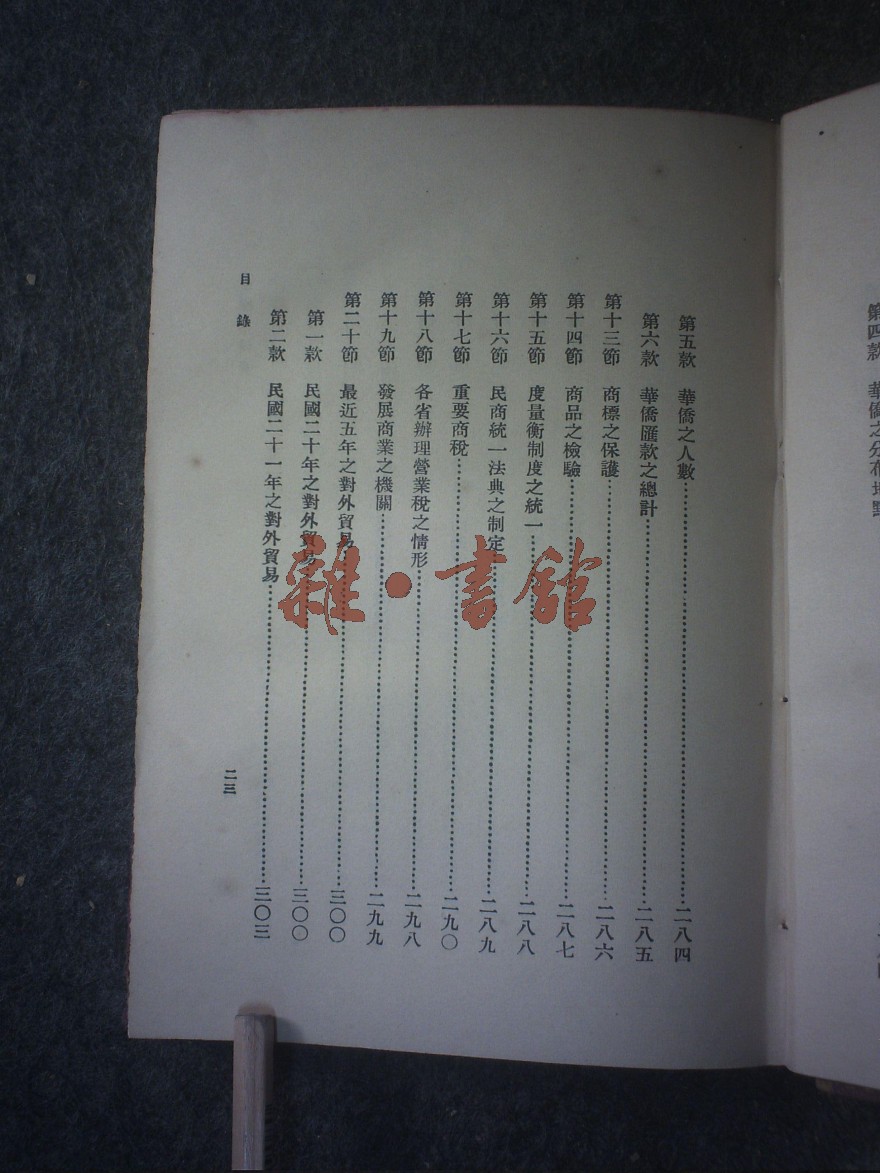 第四款　華僑之分布地點
第五款　華僑之人數……二八四
第六款　華僑匯款之總計……二八五
第十三節　商標之保護……二八六
第十四節　商品之檢驗……二八七
第十五節　度量衡制度之統一……二八八
第十六節　民商統一法典之制定……二八九
第十七節　重要商稅……二九〇
第十八節　各省辦理營業稅之情形……二九八
第十九節　發展商業之機關……二九九
第二十節　最近五年之對外貿易……三〇〇
第一款　民國二十年之對外貿易……三〇〇
第二款　民國二十一年之對外貿易……三〇三
目錄
二三
雜·書館